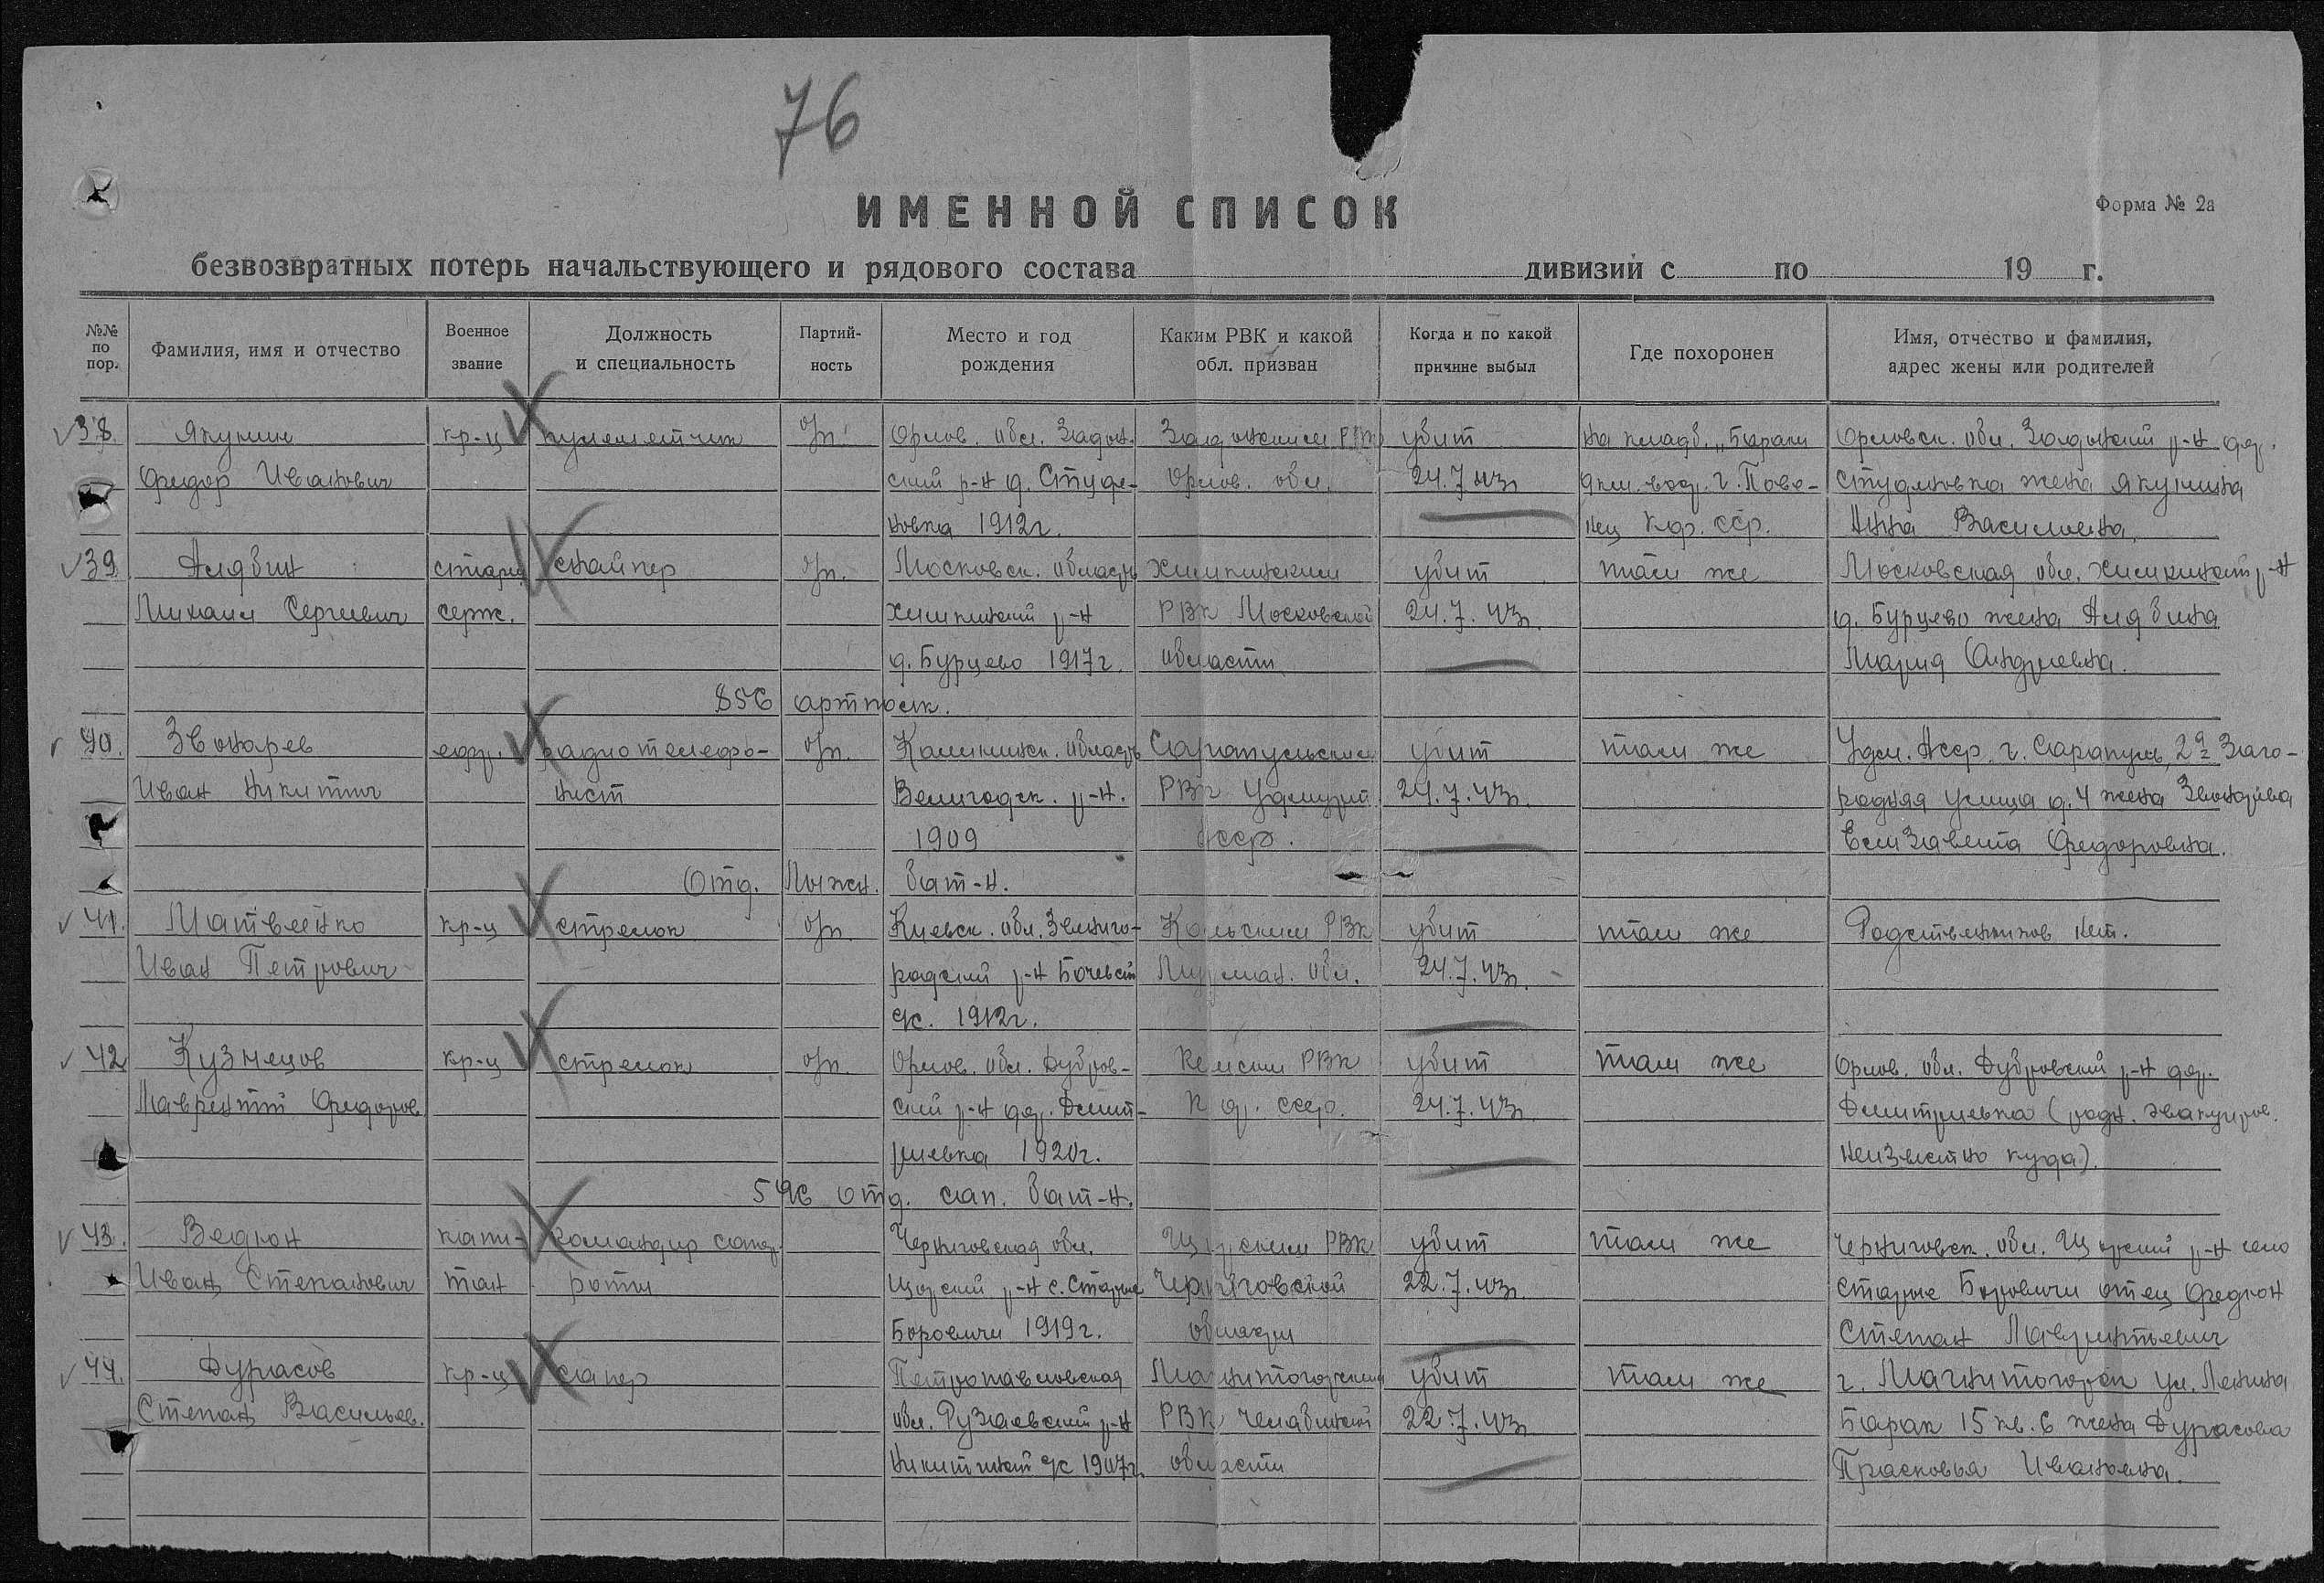 76
ИМЕННОЙ СПИСОК
Форма № 2а
безвозвратных потерь начальствующего и рядового состава дивизий с по 19 г.
№№ по пор. Фамилия, имя и отчество Военное звание Должность и специальность Партий-ность Место и год рождения Каким РВК и какой обл. призван Когда и по какой причине выбыл Где похоронен Имя, отчество и фамилия, адрес жены или родителей
38. Якунин кр-ц пулеметчик б/п. Орлов. обл. Задон- Задонским РВК убит на кладб. „Бараки Орловск. обл. Задонский р-н дер.
Федор Иванович ский р-н д. Студе- Орлов. обл. 24.7.43 9 км. вод. г. Пове- Студеновка жена Якунина
новка 1912г. нец Кф. сср. Анна Васильевна.
39. Алябин старш. снайпер б/п. Московск. область Химкинским убит там же Московская обл. Химкинский р-н
Михаил Сергеевич серж. Химкинский р-н РВК Московской 24.7.43. д. Бурцево жена Алябина
д. Бурцево 1917г. области Мария Андреевна.
856 артполк.
40. Звонарев ефр. радиотелефо- б/п. Калининск. область Сарапульским убит там же Удм. Асср. г. Сарапуль, 2я Заго-
Иван Никитич нист р-н. РВК Удмурт. 24.7.43. родная улица д. 4 жена Звонарева
1909 Асср. Елизавета Федоровна.
Отд. Лыжн. бат-н.
41. Матвеенко кр-ц стрелок б/п. Киевск. обл. Звениго- Кольским РВК убит там же Родственников нет.
Иван Петрович родский р-н Мурман. обл. 24.7.43.
с/с. 1912г.
42 Кузнецов кр-ц стрелок б/п. Орлов. обл. Дубров- Кемским РВК убит там же Орлов. обл. Дубровский р-н дер.
Лаврентий Федоров. ский р-н дер. Дмит- К ф. сср. 24.7.43 Дмитриевка (родн. эвакуиров.
риевка 1920г. неизвестно куда).
596 отд. сап. бат-н.
43. Ведрон капи- командир сапер. Черниговская обл. Щорским РВК убит там же Черниговск. обл. Щорский р-н село
Иван Степанович тан роты Щорский р-н с. Старые Черниговской 22.7.43. Старые Боровичи отец Федрон
Боровичи 1919г. области Степан Лаврентьевич
44. Дурасов кр-ц сапер Петропавловская Магнитогорским убит там же г. Магнитогорск ул. Ленина
Степан Васильев. обл. Рузаевский р-н РВК Челябинской 22.7.43 Барак 15 кв. 6 жена Дурасова
Никитинский с/с 1907г. области Прасковья Ивановна.